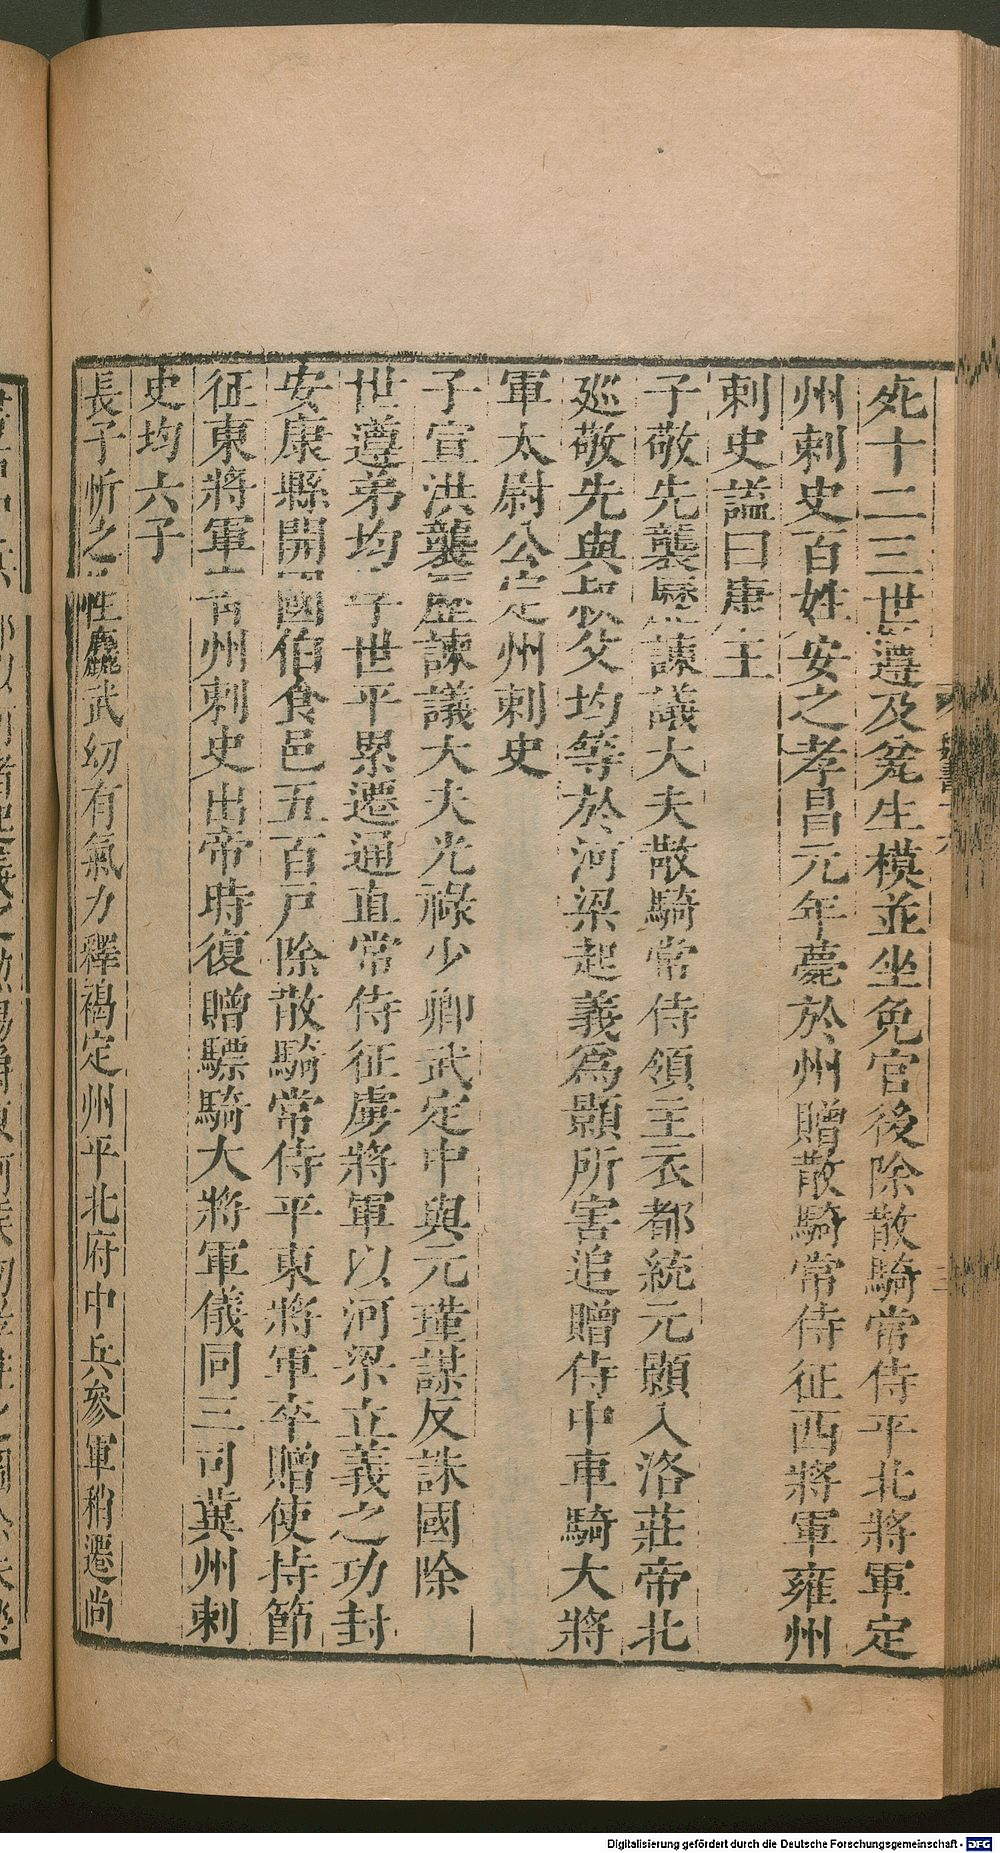 死十二三世遵及兗生模並坐免官後除散騎常侍平北將軍定
州刺史百姓安之孝昌元年薨於州贈散騎常侍征西將軍雍州
刺史謚曰康王
子敬先襲歷諫議大夫散騎常侍領主衣都統元顥入洛莊帝北
廵敬先與叔父均等於河梁起義爲顥所害追贈侍中車騎大將
軍太尉公定州刺史
子宣洪襲歷諫議大夫光祿少卿武定中與元瑾謀反誅國除
世遵弟均字世平累遷通直常侍征虜將軍以河梁立義之功封
安康縣開國伯食邑五百戸除散騎常侍平東將軍卒贈使持節
征東將軍青州刺史出帝時復贈驃騎大將軍儀同三司冀州刺
史均六子
長子忻之性麤武幼有氣力釋褐定州平北府中兵參軍稍遷尚
Digitalisierung gefördert durch die Deutsche Forschungsgemeinschaft - DFG